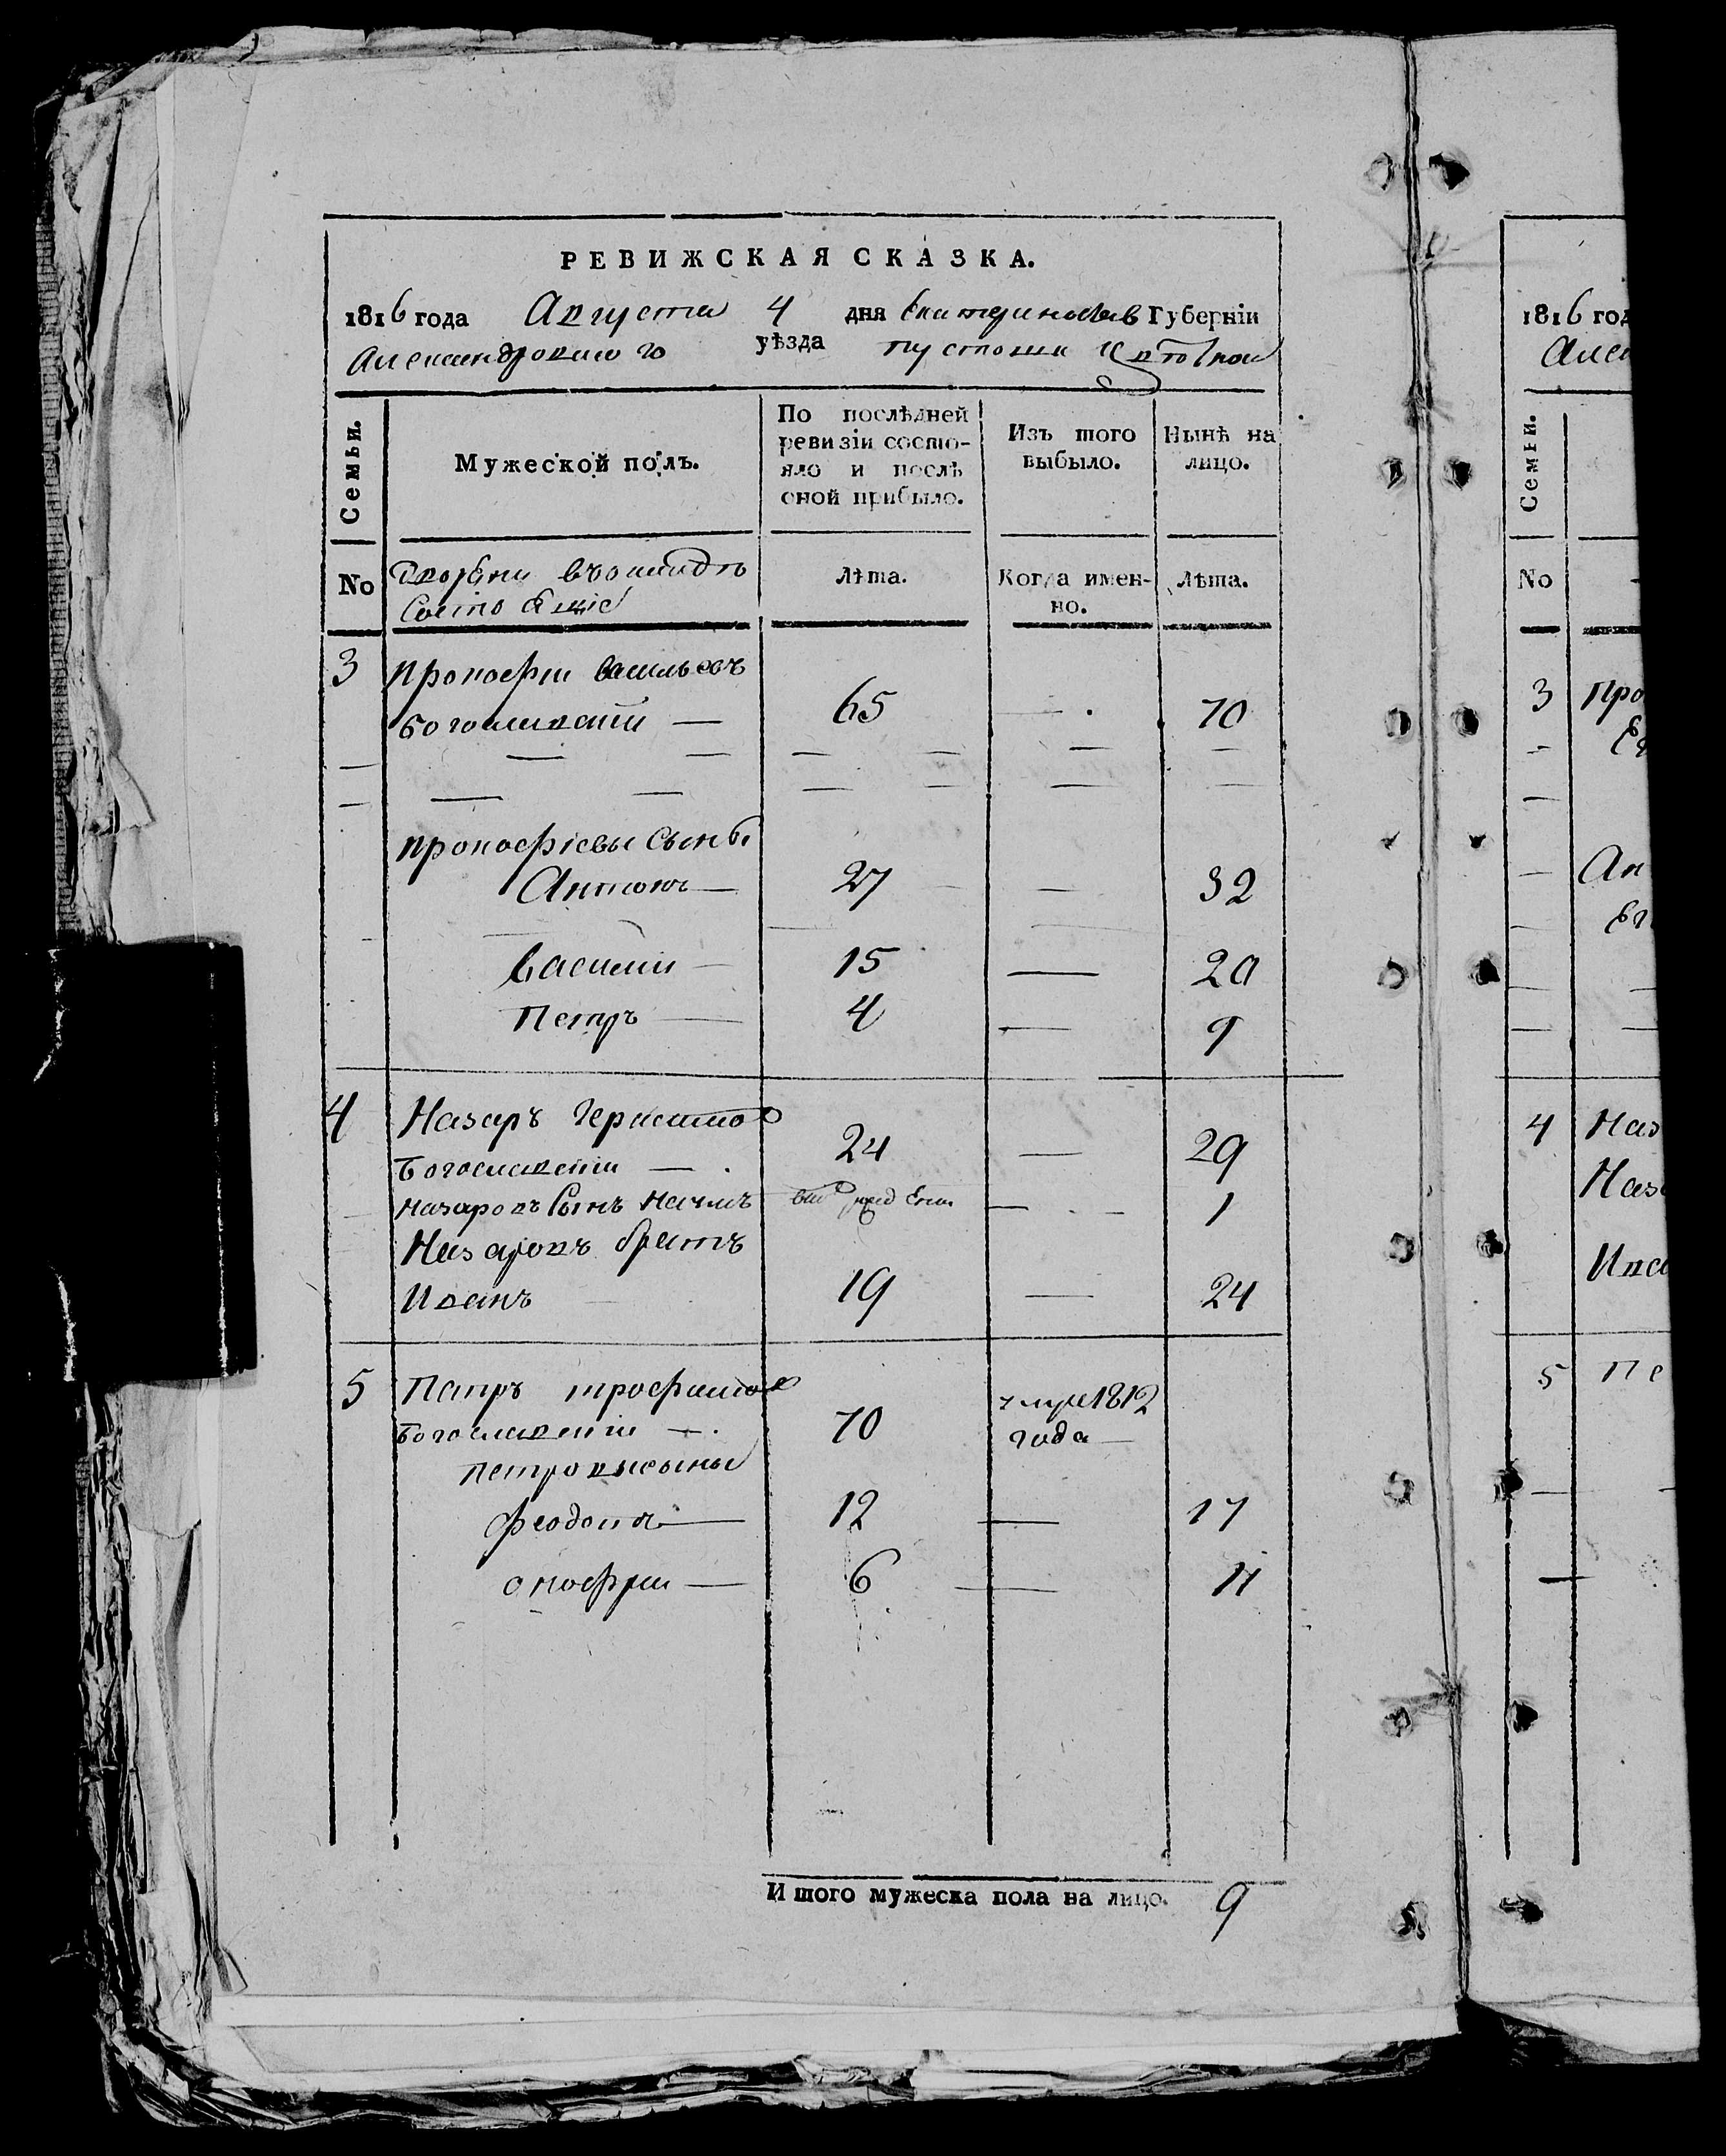 РЕВИЖСКАЯ СКАЗКА.
1816 года Августа 4 дня Екатеринослав Губерніи
Александровского уѣзда пустоши
Семьи.
Мужеской полъ.
По послѣдней ревизіи состо-
яло и послѣ
оной прибыло.
Изъ того
выбыло.
Нынѣ на
лицо.
No
Лѣта.
Когда имен-
но.
Лѣта.
3 Прокофіи Васильевъ
Богославскіи — 65 — 70
Прокофіевы Сыны
Антонъ — 27 — 32
Василіи — 15 — 20
Петръ — 4 — 9
4 Назаръ Герасимов
Богославскіи — 24 — 29
Назаровъ Сынъ Наумъ — 1
Назаровъ братъ
Иванъ 19 — 24
5 Петръ трофимов
Богославскіи — 70 умре 1812
года
петровы сыны
Феодотъ — 12 — 17
онофріи — 6 — 11
Итого мужеска пола на лицо. 9
1816 год
Алек
Семьи.
No
3 Про
Ан
4 Наз
Наз
5 Пе